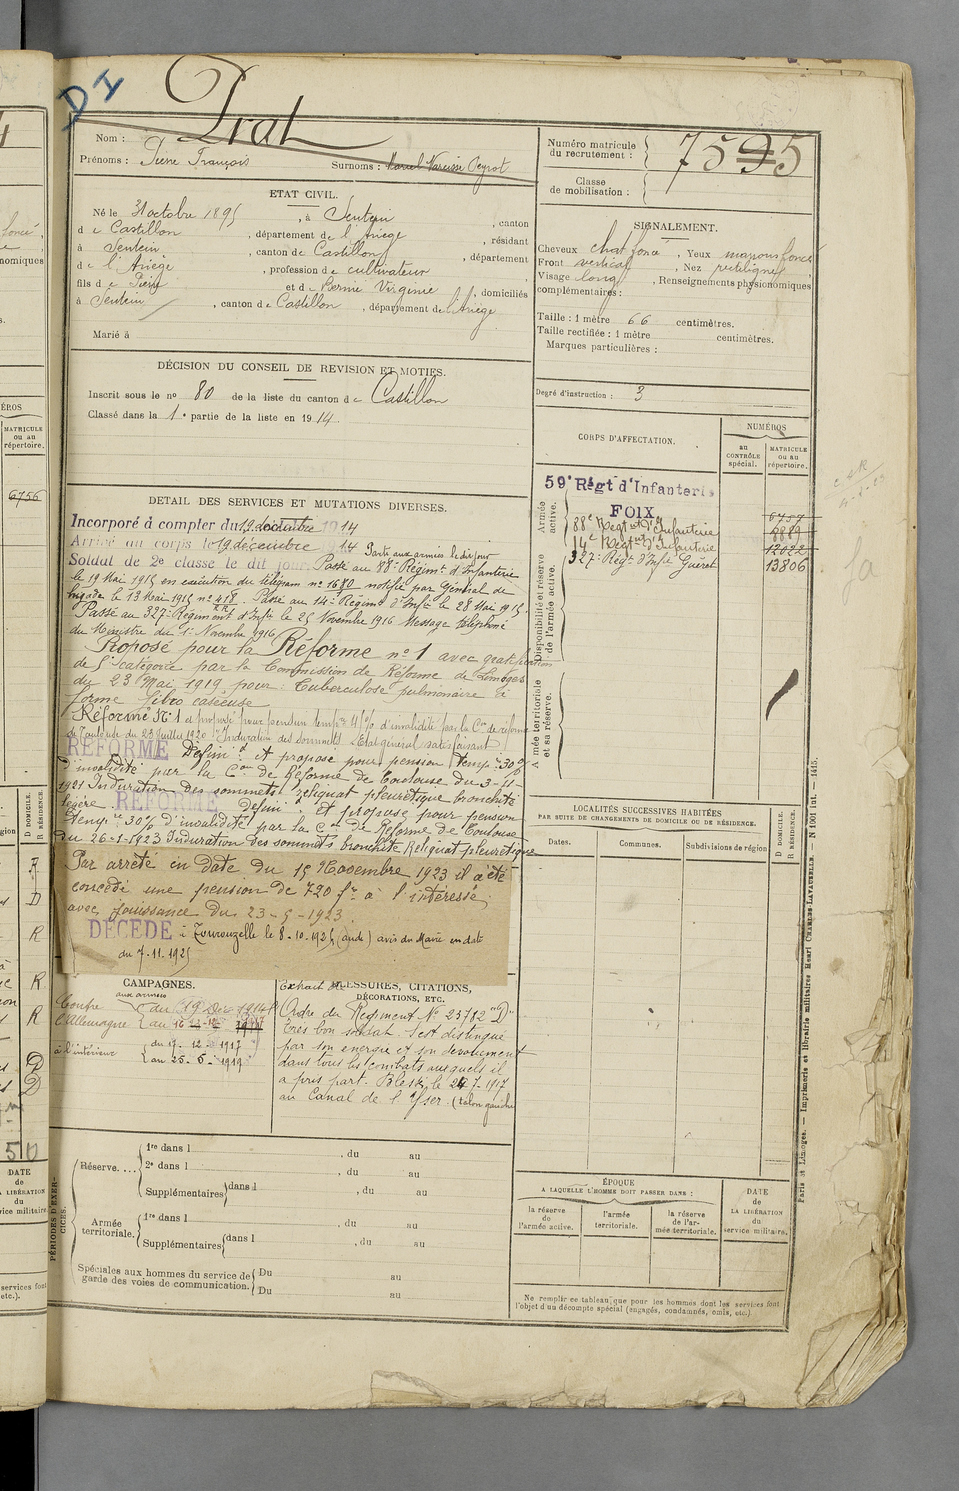 DI
Prat
Nom :
Prénoms : Pierre François
Surnoms : Peyrot
ETAT CIVIL.
Né le 31 octobre 1895, à Sentein, canton
de Castillon, département de l'Ariège, résidant
à Sentein, canton de Castillon, département
de l'Ariège, profession de cultivateur
fils de Pierre et de Virginie, domiciliés
à Sentein, canton de Castillon, département de l'Ariège
Marié à
DÉCISION DU CONSEIL DE REVISION ET MOTIFS.
Inscrit sous le no 80 de la liste du canton de Castillon
Classé dans la 1e partie de la liste en 1914.
DETAIL DES SERVICES ET MUTATIONS DIVERSES.
Incorporé à compter du 19 décembre 1914
Arrivé au corps le 19 décembre 1914 Parti aux armées le dit jour
Soldat de 2e classe le dit jour Passé au 88e Régimt d'Infanterie
le 19 Mai 1915 en exécution du télégram no 1680 notifié par Général de
brigade le 13 Mai 1915 no 418. Passé au 14e Régimt d'Infie le 28 Mai 1915.
Passé au 327e Régiment d'Infie le 25 Novembre 1916 Message téléphoné
du Ministre du 1er Novembre 1916
Proposé pour la Réforme no 1 avec gratification
de 5e catégorie par la Commission de Réforme de Limoges
du 23 Mai 1919 pour : Tuberculose pulmonaire à
forme fibro caséeuse
Réformé No 1 et proposé pour pension tempre d'invalidité par la Con de réforme
de Toulouse du 23 Juillet 1920 Induration des sommets Etat général satisfaisant
REFORMÉ Définift et proposé pour pension temp. 30%
d'invalidité par la Con de Réforme de Toulouse du 3-11-
1921 Induration des sommets reliquat pleurétique bronchite
légère. REFORMÉ Définift et proposé pour pension
tempre 30% d'invalidité par la Con de Réforme de Toulouse
du 26-1-1923 Induration des sommets bronchite Reliquat pleurétique
Par arrêté en date du 15 Novembre 1923 il a été
concédé une pension de 720 frs à l'intéressé,
avec jouissance du 23-5-1923.
DÉCÉDÉ à Tourouzelle le 8-10-1925 (aude) avis du Maire en date
du 7-11-1925
CAMPAGNES.
Contre l'Allemagne aux armées du 19 Déc 1914
au 16-12-1917
à l'intérieur du 17-12-1917
au 25-6-1919
BLESSURES, CITATIONS,
DÉCORATIONS, ETC.
Extrait de
Ordre du Régiment No 23712 "D"
Très bon soldat. S'est distingué
par son énergie et son dévouement
dans tous les combats auxquels il
a pris part. Blessé le 24-7-1917
au Canal de l'Yser. (talon gauche)
PÉRIODES D'EXERCICES.
Réserve....
1re dans l , du au
2e dans l , du au
Supplémentaires dans l , du au
Armée territoriale.
1re dans l , du au
Supplémentaires dans l , du au
Spéciales aux hommes du service de garde des voies de communication.
Du au
Du au
Numéro matricule du recrutement : 7595
Classe de mobilisation :
SIGNALEMENT.
Cheveux chat foncé, Yeux marrons foncé
Front vertical, Nez rectiligne
Visage long, Renseignements physionomiques
complémentaires :
Taille : 1 mètre 66 centimètres.
Taille rectifiée : 1 mètre centimètres.
Marques particulières :
Degré d'instruction : 3
CORPS D'AFFECTATION.
NUMÉROS
au CONTRÔLE spécial.
MATRICULE ou au répertoire.
Armée active.
59e Régt d'Infanterie
FOIX
88e Régt d'Infanterie 8889
14e Régt d'Infanterie 12022
327e Régt d'Infie Guéret 13806
Disponibilité et réserve de l'armée active.
Armée territoriale et sa réserve.
LOCALITÉS SUCCESSIVES HABITÉES
PAR SUITE DE CHANGEMENTS DE DOMICILE OU DE RÉSIDENCE.
Dates.
Communes.
Subdivisions de région
D DOMICILE.
R RÉSIDENCE.
ÉPOQUE
A LAQUELLE L'HOMME DOIT PASSER DANS :
la réserve de l'armée active.
l'armée territoriale.
la réserve de l'armée territoriale.
DATE de LA LIBÉRATION du service militaire.
Ne remplir ce tableau que pour les hommes dont les services font
l'objet d'un décompte spécial (engagés, condamnés, omis, etc.).
Paris et Limoges. — Imprimerie et librairie militaires Henri CHARLES-LAVAUZELLE. — N 1001 lut. — 1415.
NUMÉROS
MATRICULE ou au répertoire.
6756
D DOMICILE.
R RÉSIDENCE.
R
D
R
R
R
DATE de LA LIBÉRATION du service militaire.
services font
etc.).